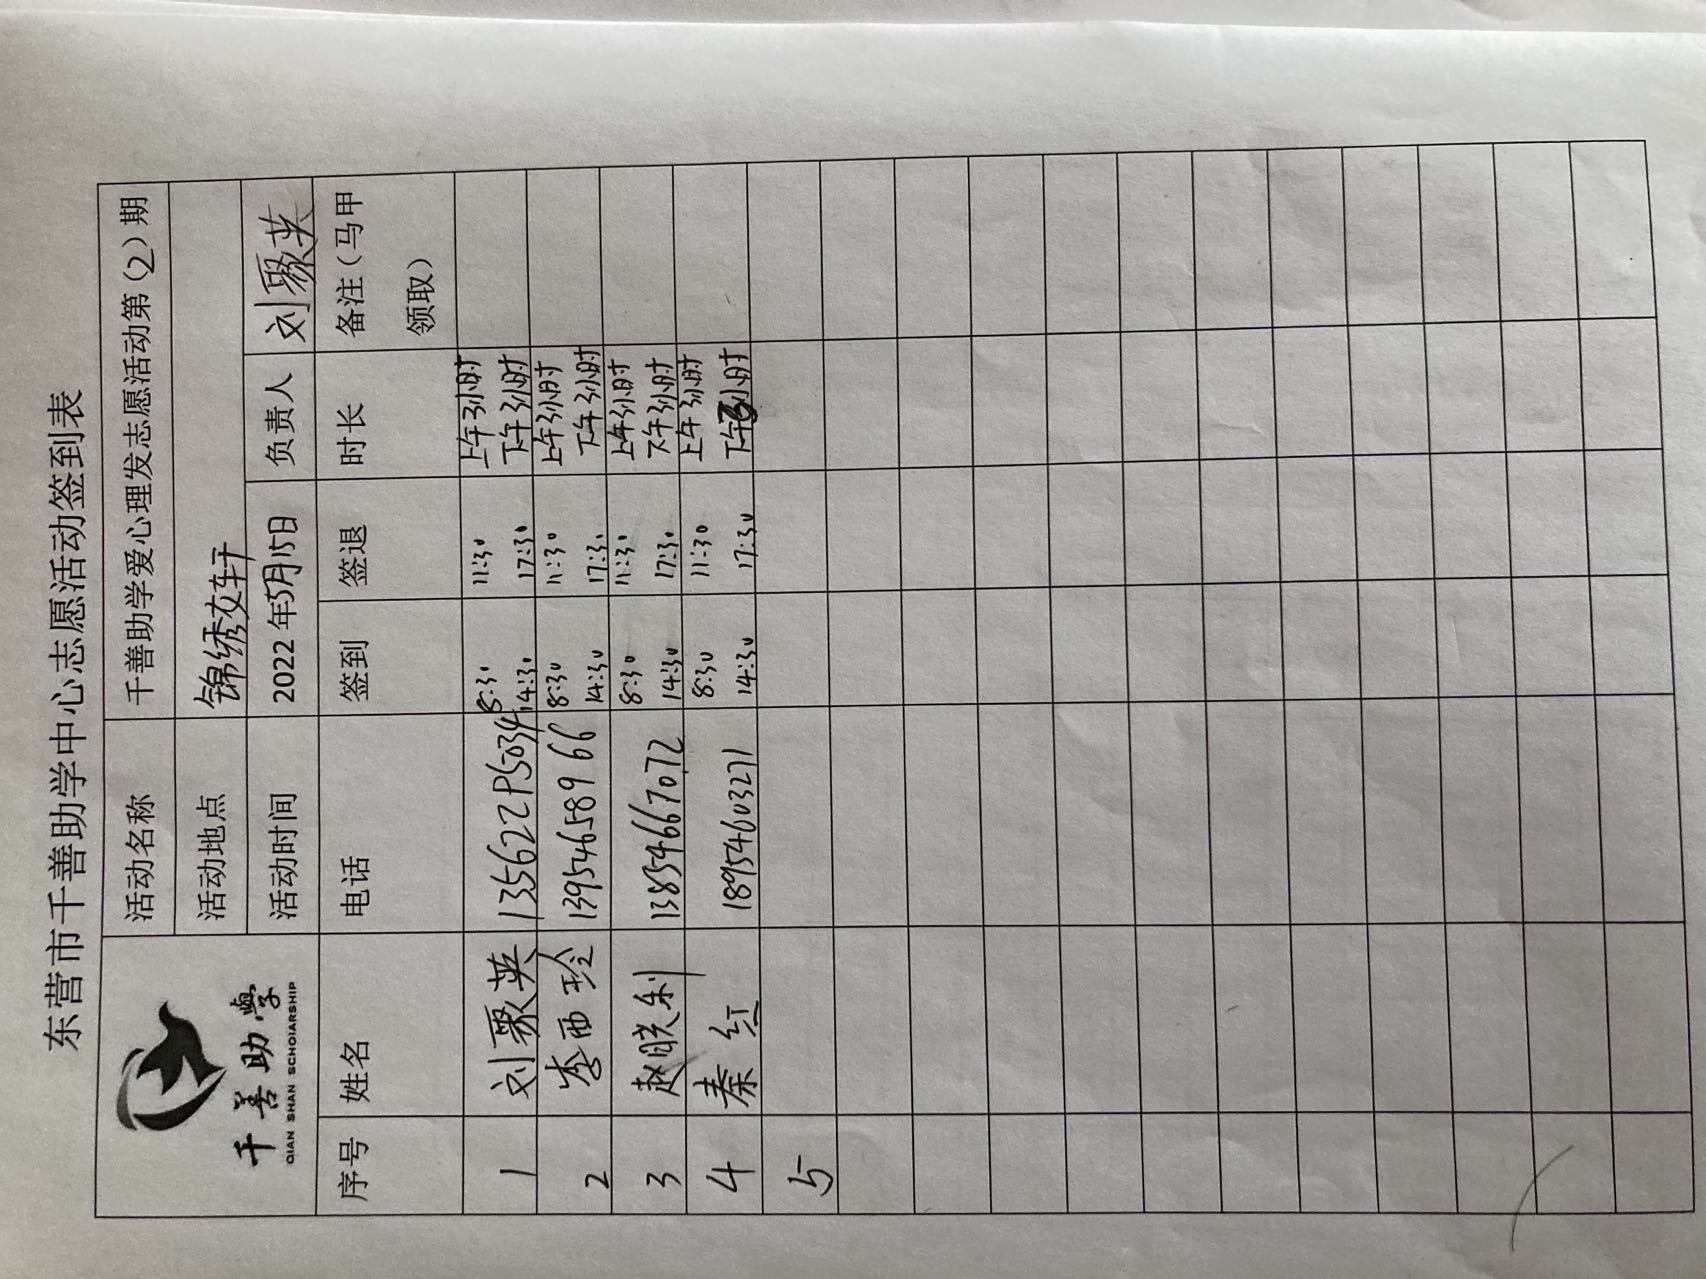 东营市千善助学中心志愿活动签到表
千善助学
QIAN SHAN SCHOlARSHIP
活动名称 千善助学爱心理发志愿活动第（2）期
活动地点 锦绣
活动时间 2022年5月15日 负责人 刘聚英
序号 姓名 电话 签到 签退 时长 备注（马甲
领取）
1 刘聚英 8:30 11:30 上午3小时
14:30 17:30 下午3小时
2 李西玲 13954658966 8:30 11:30 上午3小时
14:30 17:30 下午3小时
3 赵联利 13854667072 8:30 11:30 上午3小时
14:30 17:30 下午3小时
4 秦红 18954603271 8:30 11:30 上午3小时
14:30 17:30 下午3小时
5